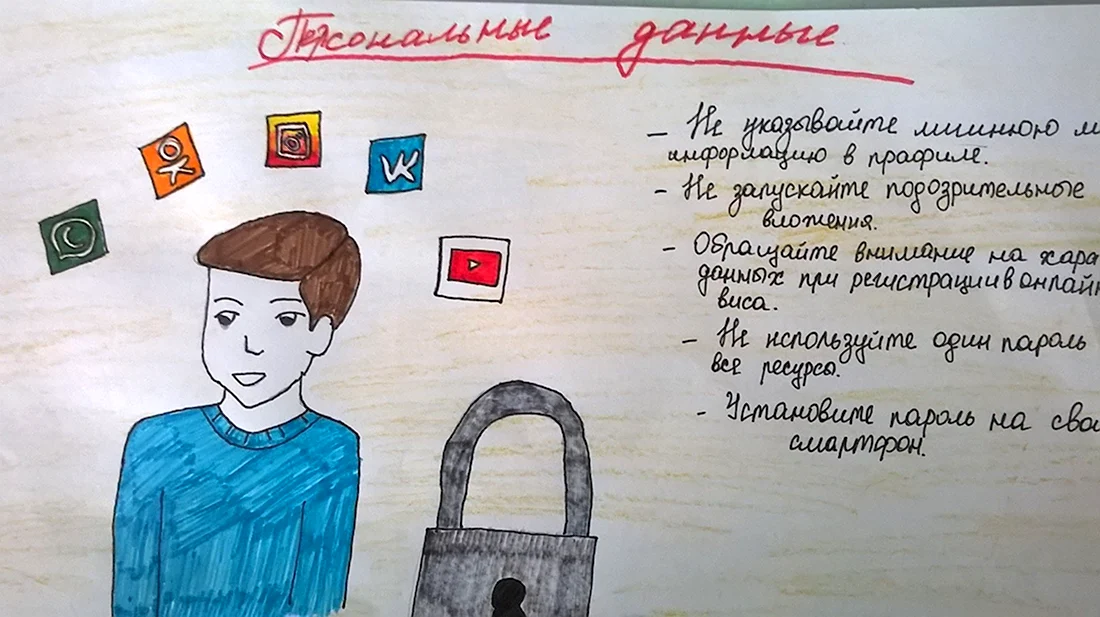 Персональные данные
VK
- Не указывайте лишнюю
информацию в прафиле.
- Не запускайте подозрительные
вложения.
- Обращайте внимание на хара
данных при регистрации в онлайн
виса.
- Не используйте один пароль
все ресурсы.
- Установите пароль на сво
смартфон.